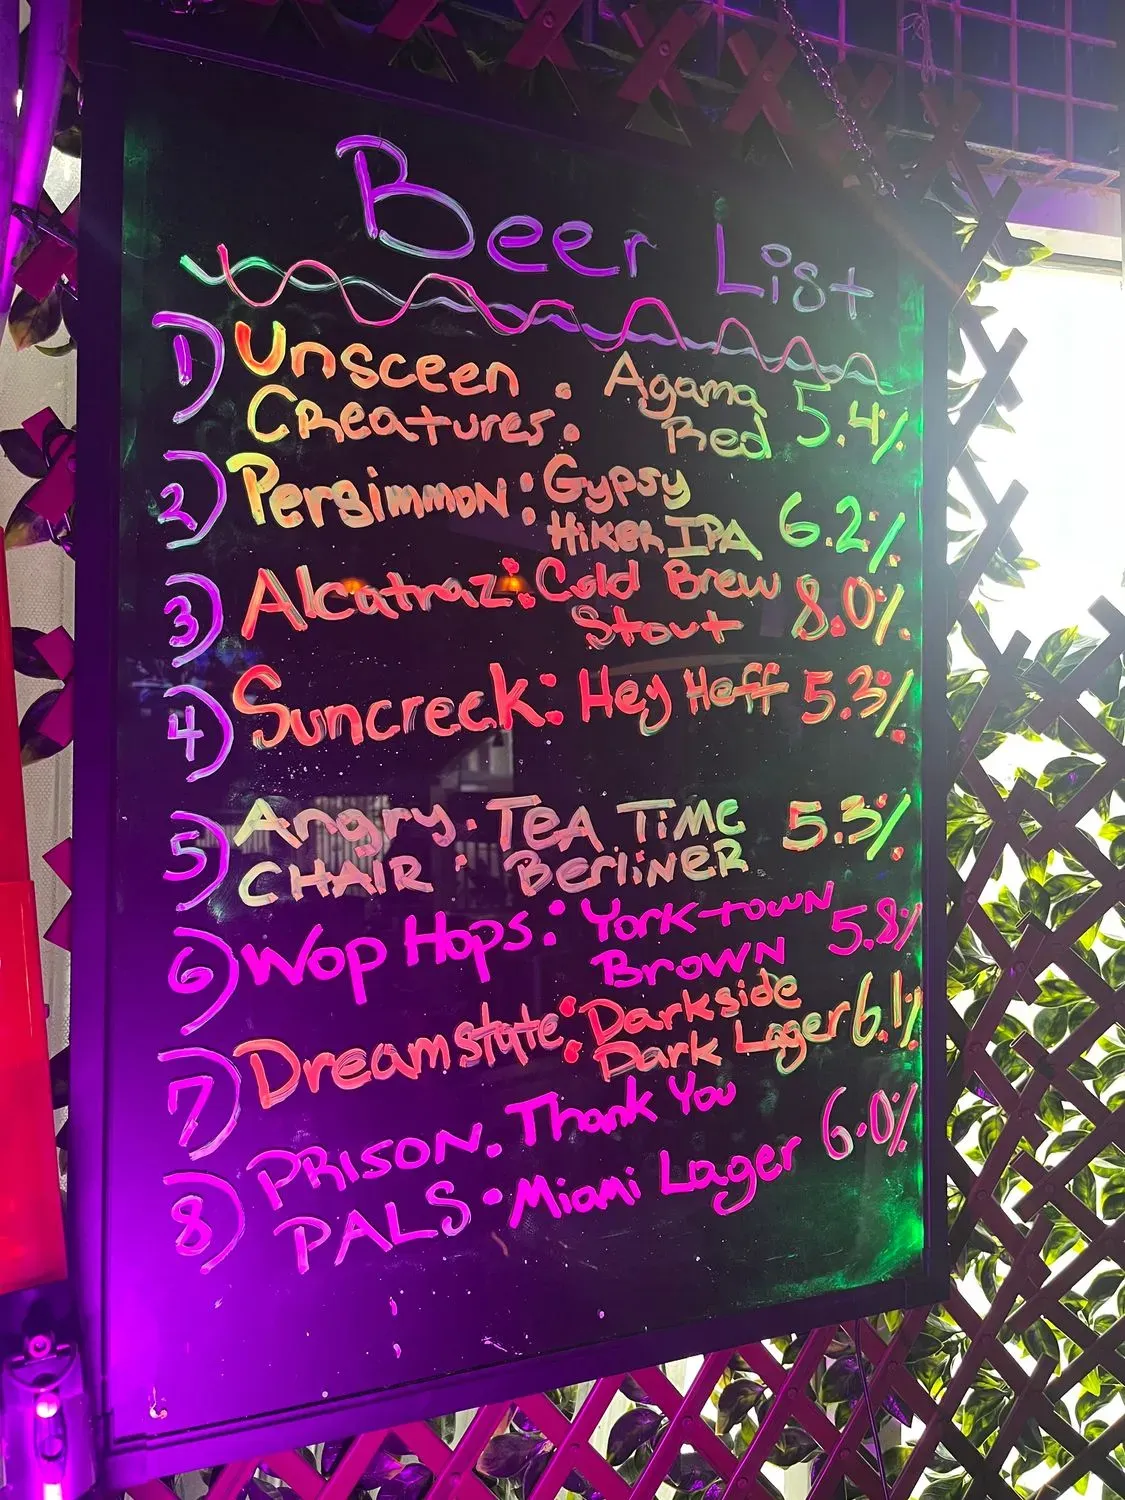 Beer List
1) Unsceen : Agama 5.4%
Creatures Red
2) Persimmon : Gypsy 6.2%
Hiker IPA
3) Alcatraz : Cold Brew 8.0%
Stout
4) Suncreek : Hey Heff 5.3%
5) Angry : TEA TIME 5.3%
CHAIR BerliNER
6) Wop Hops : York-town 5.8%
Brown
7) Dreamstate : Darkside 6.1%
Dark Lager
8) PRISON : Thank You 6.0%
PALS Miami Lager